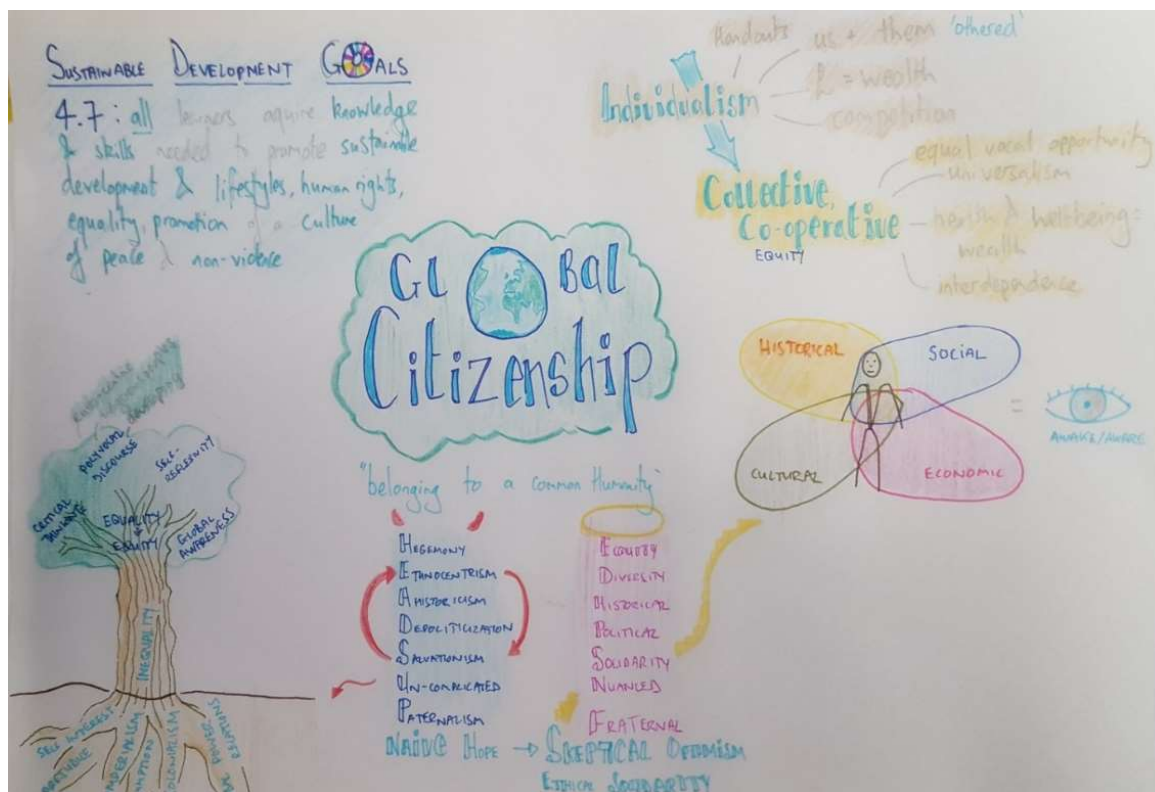 SUSTAINABLE DEVELOPMENT GOALS
4.7: all learners aquire knowledge
& skills needed to promote sustainable
development & lifestyles, human rights,
equality, promotion of a culture
of peace & non-violence
Handouts
us + them 'othered'
Individualism
£ = wealth
competition
Collective,
Co-operative
EQUITY
equal vocal opportunity
universalism
health & wellbeing =
wealth
interdependence
GLOBAL
Citizenship
"belonging to a common Humanity"
HISTORICAL
SOCIAL
CULTURAL
ECONOMIC
=
AWAKE/AWARE
POLYVOCAL
DISCOURSE
SELF-
REFLEXIVITY
CRITICAL
THINKING
EQUALITY
&
EQUITY
GLOBAL
AWARENESS
INEQUALITY
SELF INTEREST
COLONIALISM
POWER
HEGEMONY
ETHNOCENTRISM
AHISTORICISM
DEPOLITICIZATION
SALVATIONISM
UN-COMPLICATED
PATERNALISM
EQUITY
DIVERSITY
HISTORICAL
POLITICAL
SOLIDARITY
NUANCED
FRATERNAL
NAIVE HOPE → SKEPTICAL OPTIMISM
ETHICAL SOLIDARITY